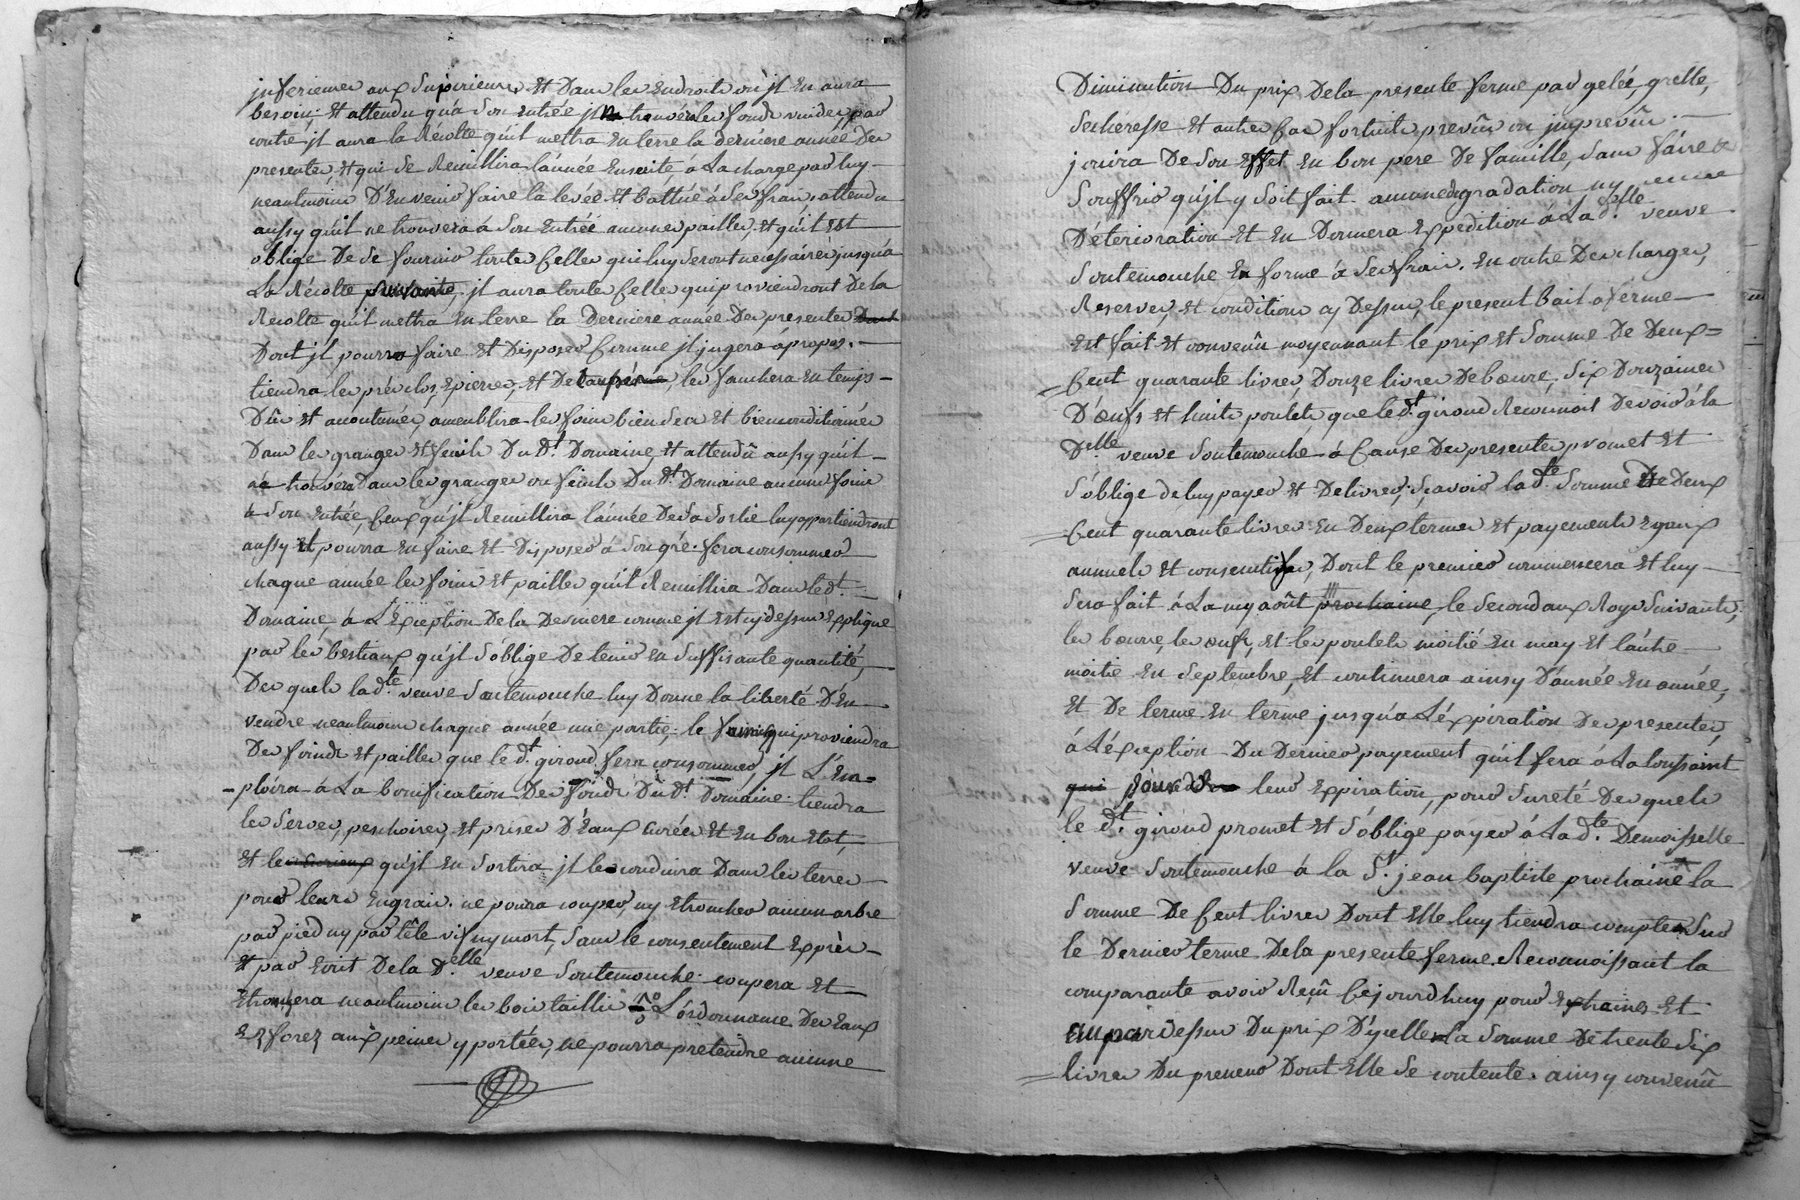 jnferieures aux Superieures, Et Dans les Endroits où jl En aura
besoin; Et attendu qu'a Son entrée jl trouvera les fonds vuides, par
contre jl aura la Recolte qu'il mettra En terre la derniere année Des
presentes, Et qui Se Recuillira l'année Ensuite à La charge par luy
neantmoins D'En venir faire la levée Et battüe à Ses frais, attendu
aussy qu'il ne trouvera à Son Entrée aucunes pailles, Et qu'il Est
oblige De Se fournir toutes Celles qui luy Seront necessaires jusqu'a
La Récolte suivante, jl aura toute Celles qui proviendront De la
Recolte qu'il mettra En terre la Derniere année Des presentes
Dont jl pourra faire Et Disposer Comme jl jugera à propos.
tiendra les prés clos, Epierrés, Et De les fauchera En temps
Dûs Et accoutumés, ameublira les foins bien Secs Et bien conditionnés
Dans les granges Et fenils Du dt. Domaine, Et attendû aussy qu'il
n'a trouvera Dans les granges ou fenils Du dt. Domaine aucuns foins
à Son Entrée, Ceux qu'jl Recuillira l'année De Sa Sortie luy appartiendront
aussy Et pourra En faire Et Disposer à Son gré. fera consommer
chaque année les foins Et pailles qu'il Recuillira Dans le dt.
Domaine à L'Exception De la Derniere comme jl Est cy dessus Expliqué
par les bestiaux qu'jl S'oblige De tenir En Suffisante quantité,
Des quels la dte. veuve Soutemouche luy Donne la liberté D'En
vendre neantmoins chaque année une partie; le qui proviendra
Des foinds Et pailles que le dt. giroud fera consommer, jl L'Em=
-ploira à La bonification Des fonds Du dt. Domaine. tiendra
les Serves, peschoires, Et prises D'Eaux Curées Et En bon Etat,
Et les qu'jl En Sortira jl les conduira Dans les terres
pour leurs Engrais. ne pourra couper, ny Etroncher aucun arbre
par pied ny par tête vif ny mort, Sans le consentement Exprès
Et par Ecrit De la Delle. veuve Soutemouche. coupera Et
neantmoins les bois taillis L'ordonnance Des Eaux
Ez forez aux peines y portées, ne pourra pretendre aucune
Diminution Du prix De la presente ferme par gelée, grelle,
Secheresse Et autres Cas fortuits prevûs ou jmprevûs.
jouira De Son Effet En bon pere De famille, Sans faire
Souffrir qu'jl y Soit fait aucune degradation ny
Déterioration Et En Donnera Expedition à La delle. veuve
Soutemouche En forme à Ses frais. En outre Des charges,
Reserves, Et conditions cy Dessus, le present bail à ferme
Est fait Et convenû moyennant le prix et Somme De Deux=
Cent quarante livres, Douze livres De beure, Six Douzaines
D'oeufs Et huits poulets que le dt. giroud Reconnoit Devoir à la
Delle. veuve Soutemouche à Cause Des presentes promet Et
S'oblige de luy payer Et Delivrer; Sçavoir la dte. Somme De Deux
Cent quarante livres En Deux termes Et payements Egaux
annuels Et consecutifs, Dont le premier commencera Et luy
Sera fait à La my août prochaine, le Second aux Roys Suivants;
les beurre, les oeufs, Et les poulets moitié En may Et l'autre
moitie En Septembre, Et continuera ainsy D'année En année,
Et De terme En terme jusqu'a L'éxpiration Des presentes,
à L'éxception Du Dernier payement qu'il fera à La toussaint
leur Expiration, pour Sureté Des quels
le dt. giroud promet Et S'oblige payer à La dte. Demoisselle
veuve Soutemouche à la St. jean baptiste prochaine la
Somme De Cent livres Dont Elle luy tiendra compte Sur
le Dernier terme De la presente ferme. Reconnoissant la
comparante avoir Reçû Cejourd'huy pour Ephaines Et
Du prix D'ycelle La Somme De trente Six
livres Du preneur Dont Elle Se contente. ainsy convenû